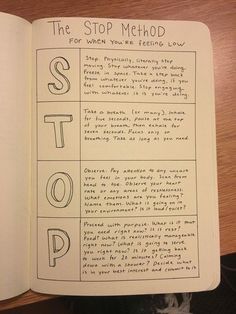 The STOP Method
FOR WHEN YOU'RE FEELING LOW
S
Stop. Physically, literally stop
moving. Stop whatever you're doing,
freeze in space. Take a step back
from whatever you're doing, if you
feel comfortable. Stop engaging
with whatever it is you're doing.
T
Take a breath (or many). Inhale
for five seconds, pause at the top
of your breath, then exhale for
seven seconds. Focus only on
breathing. Take as long as you need.
O
Observe. Pay attention to any unease
you feel in your body. Scan from
head to toe. Observe your heart
rate or any areas of restlessness.
What emotions are you feeling?
Name them. What is going on in
your environment? Is it loud/quiet?
P
Proceed with purpose. What is it that
you need right now? Is it rest?
Food? What is realistically manageable
right now? What is going to serve
you right now? Is it getting back
to work for 20 minutes? Calming
down with a shower? Decide what
is in your best interest and commit to it.